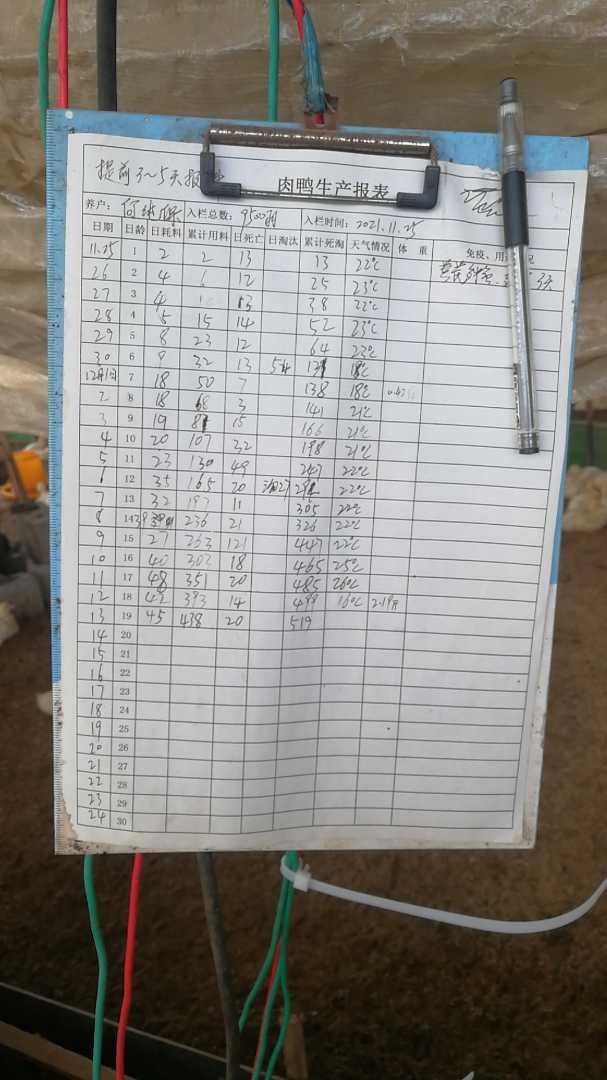 提前3~5天报
肉鸭生产报表
养户: 入栏总数: 9500羽 入栏时间: 2021.11.25
日期 日龄 日耗料 累计用料 日死亡 日淘汰 累计死淘 天气情况 体 重 免疫、用 况
11.25 1 2 2 13 13 22℃
26 2 4 6 12 25 23℃
27 3 4 13 38 22℃
28 4 5 15 14 52 23℃
29 5 8 23 12 64 23℃
30 6 9 32 13 54 18℃
12月1日 7 18 50 7 138 18℃
2 8 18 68 3 141 21℃
3 9 19 87 15 166 21℃
4 10 20 107 32 198 21℃
5 11 23 130 49 247 22℃
6 12 35 165 20 22℃
7 13 32 197 11 305 22℃
8 14 236 21 326 22℃
9 15 27 263 121 447 22℃
10 16 40 302 18 465 25℃
11 17 48 351 20 485 26℃
12 18 42 393 14 499 16℃
13 19 45 438 20 519
14 20
15 21
16 22
17 23
18 24
19 25
20 26
21 27
22 28
23 29
24 30